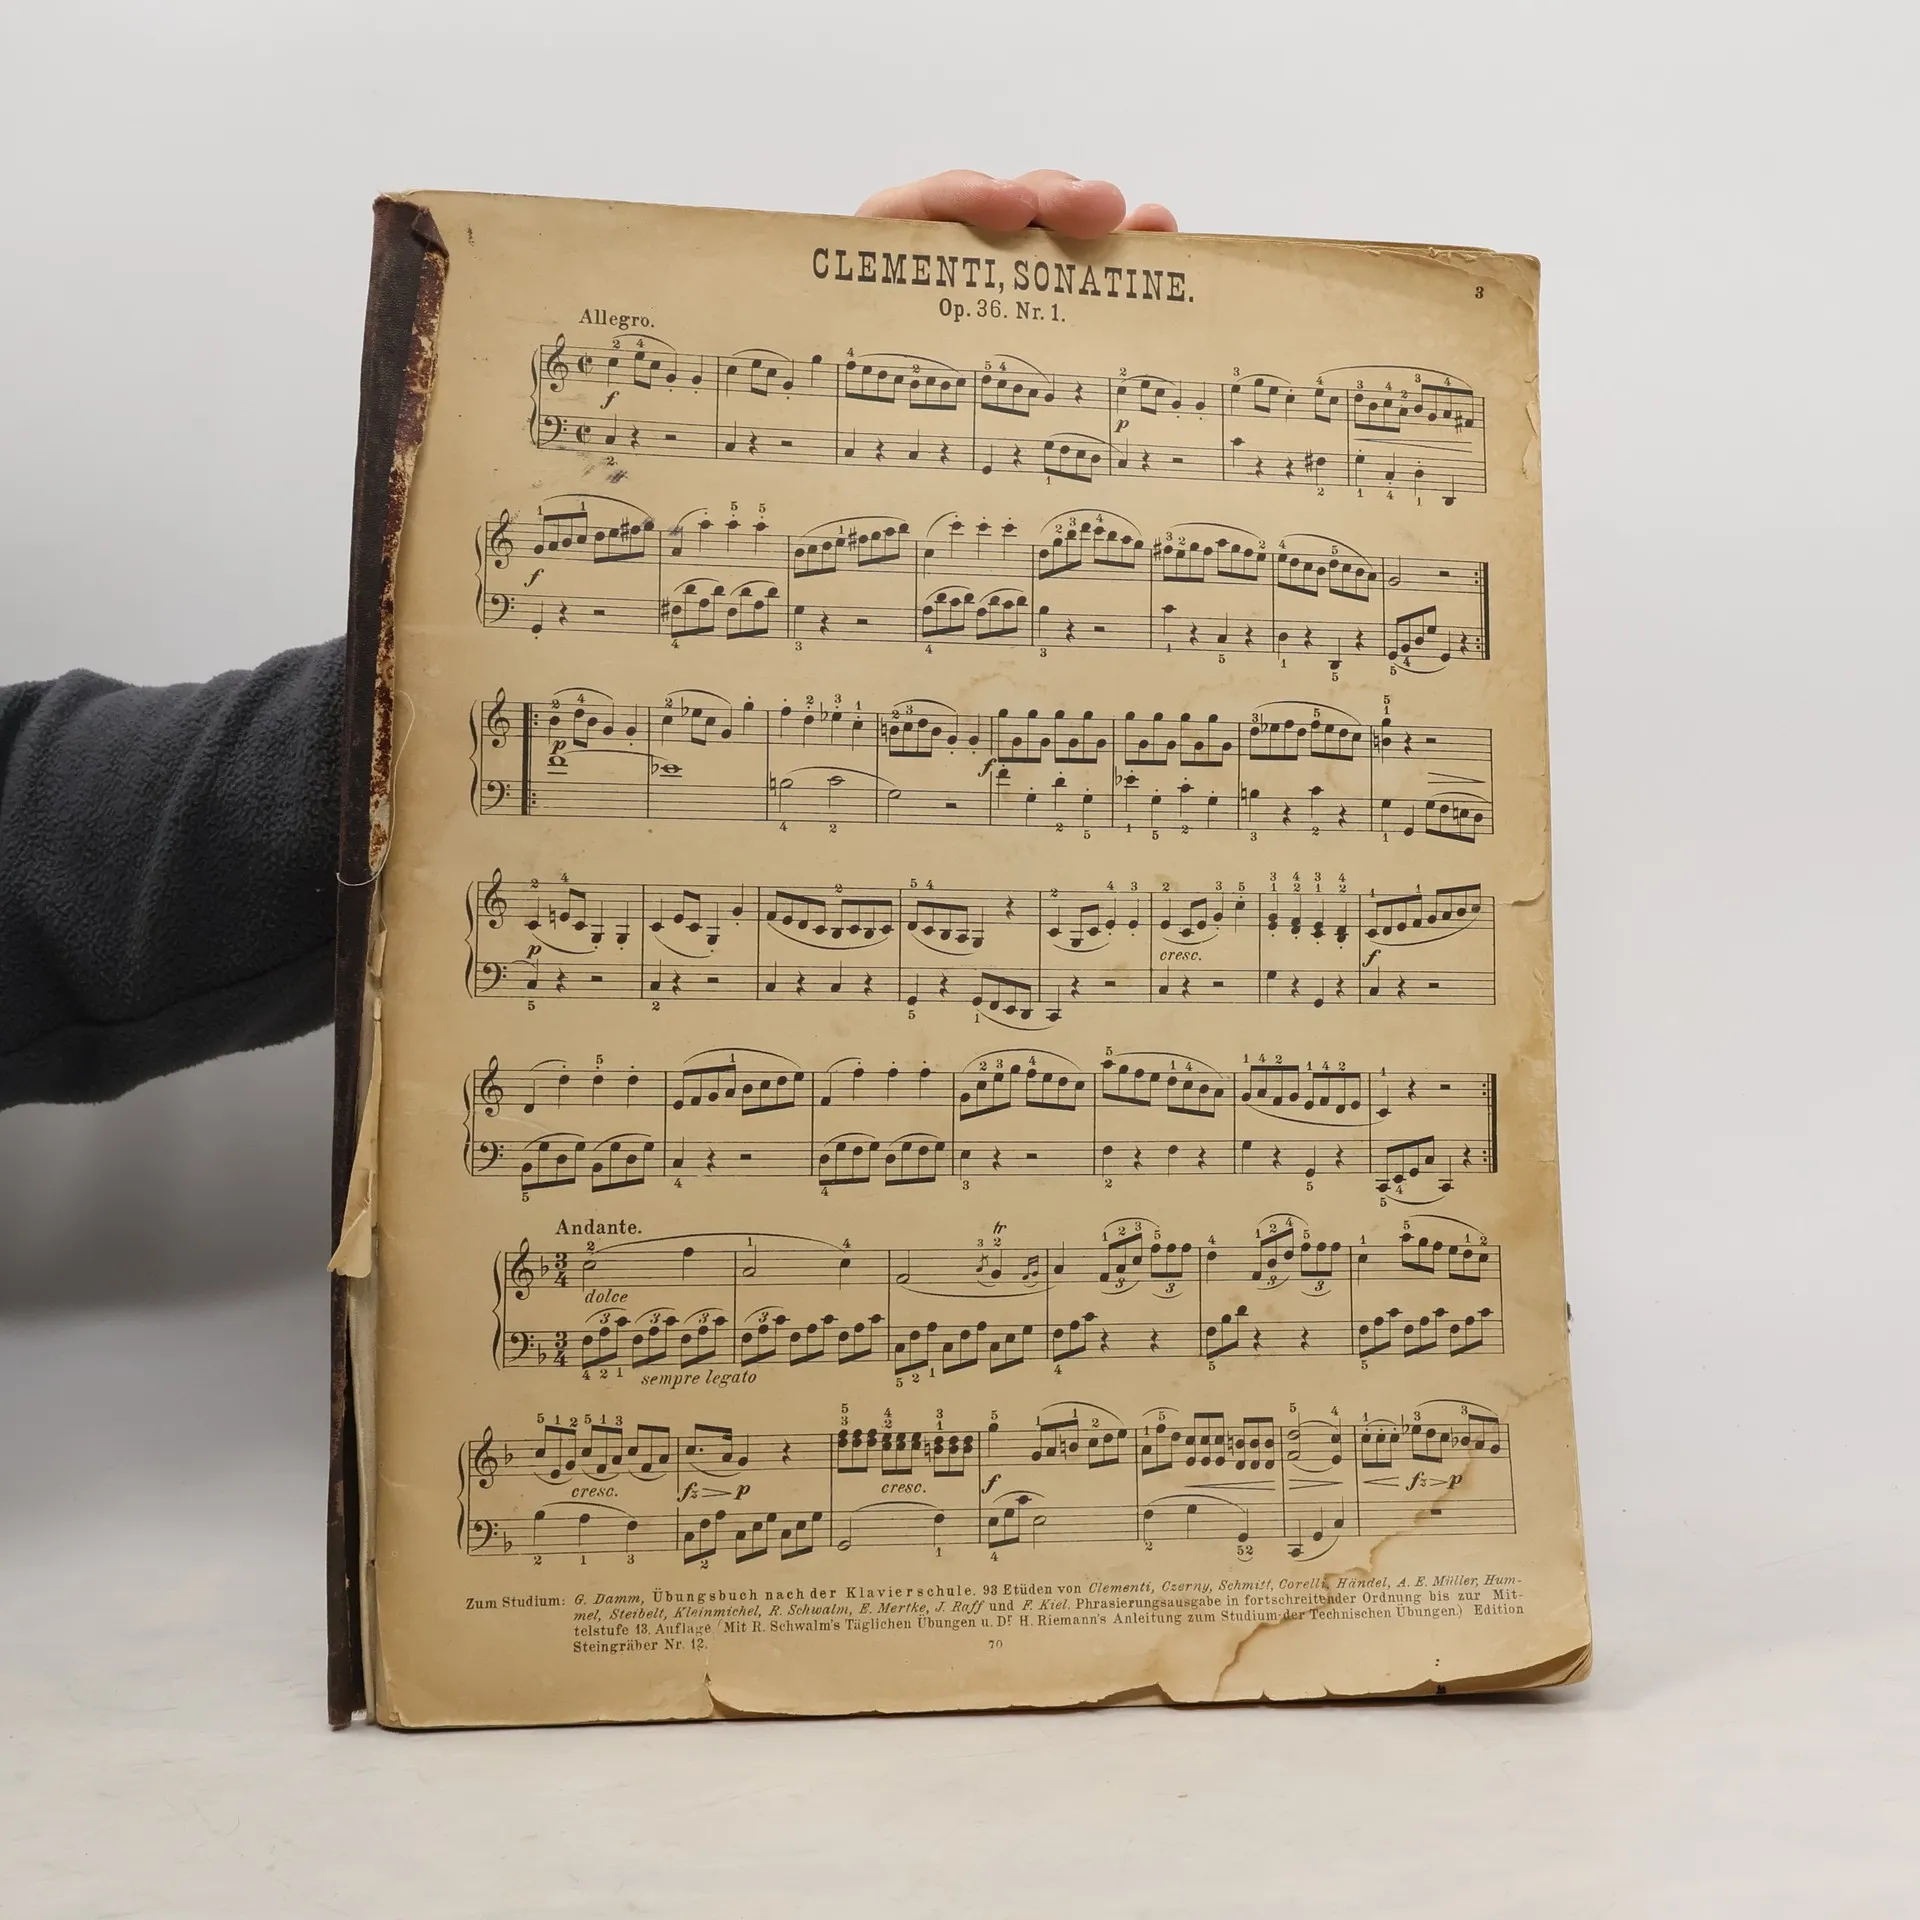 CLEMENTI, SONATINE.
3
Op. 36. Nr. 1.
Allegro.
f
p
f
p
f
p
cresc.
f
Andante.
tr
dolce
sempre legato
cresc.
fz
p
cresc.
f
fz
p
Zum Studium: G. Damm, Übungsbuch nach der Klavierschule. 93 Etüden von Clementi, Czerny, Schmitt, Corelli, Händel, A. E. Müller, Hum-
mel, Steibelt, Kleinmichel, R. Schwalm, E. Mertke, J. Raff und F. Kiel. Phrasierungsausgabe in fortschreitender Ordnung bis zur Mit-
telstufe 13. Auflage (Mit R. Schwalm's Täglichen Übungen u. Dr H. Riemann's Anleitung zum Studium der Technischen Übungen.) Edition
Steingräber Nr. 12.
70